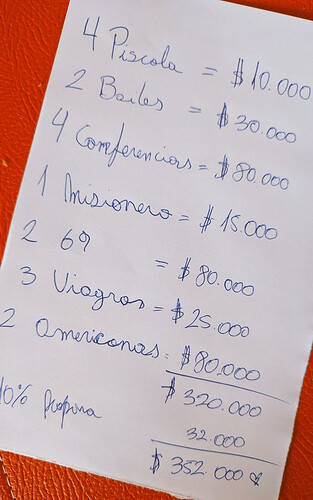 4 Piscola = $10.000
2 Bailes = $30.000
4 Comferencias = $80.000
1 Misionero = $15.000
2 69 = $80.000
3 Viagras = $25.000
2 Americanas = $80.000
$320.000
10% Propina 32.000
$352.000